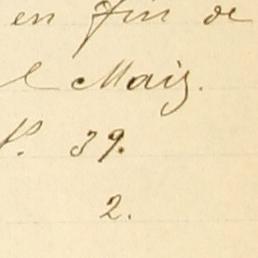 en fin de
l Maiz.
P. 39.
2.